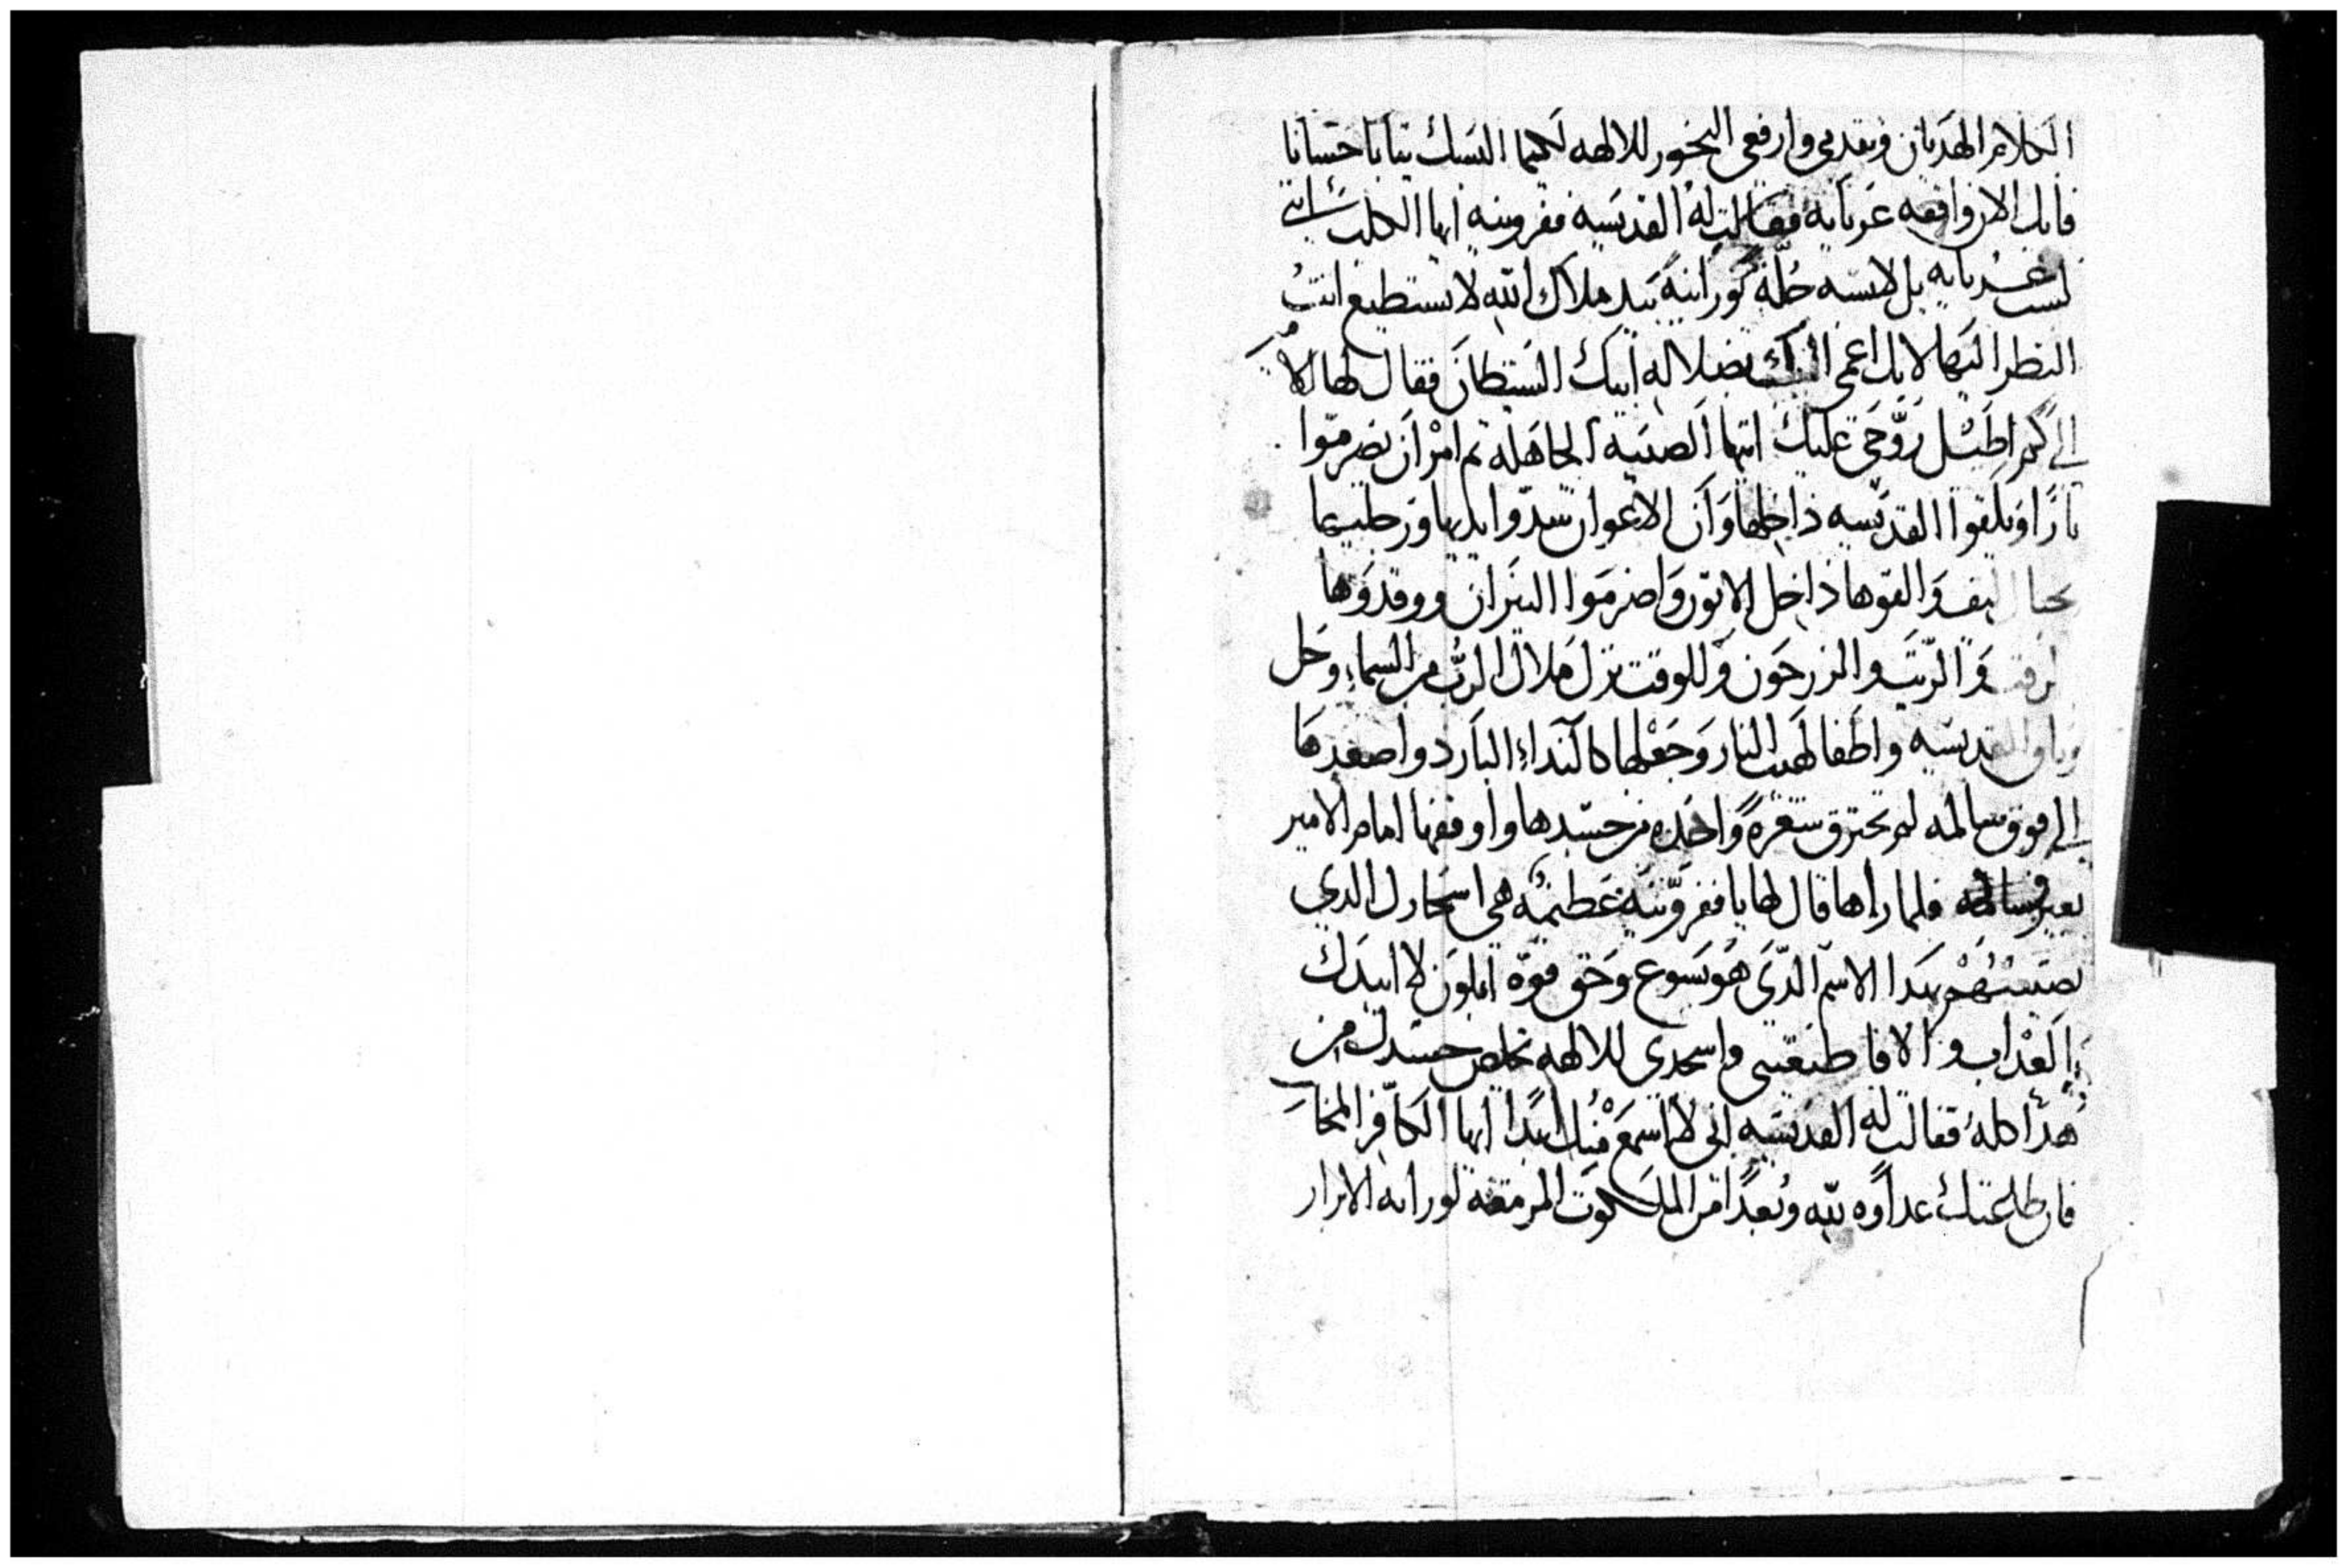 الكلام الهديان وتقدمي وارفعي البخور للالهه لكيما البسك تيابا حسانا
فانك الان واقفه عريانه فقالت له القديسه ففرونيه ايها الكلب انني
لست عريانه بل لابسه حله نورانيه بيد ملاك الله لا تستطيع انت
النظر اليها لانك اعمى القلب بضلالة ابيك الشيطان فقال لها الامير
الى كم اطيل روحي عليك ايتها الصبيه الجاهله تم امر ان يضرموا
نارا ويلقوا القديسه داخلها وان الاعوان شدوا يديها ورجليها
بحبال ليف والقوها داخل الاتون واضرموا النيران ووقدوها
والزيت والزرجون وللوقت نزل ملاك الرب من السماء وحل
وثاق القديسه واطفا لهيب النار وجعلها كالنداء البارد واصعدها
الى فوق سالمه لم تحترق شعره واحده من جسدها واوقفها امام الامير
بغير فساد فلما راها قال لها يا ففرونيه عظيمه هي اسحارك الدي
تصنعيهم بهدا الاسم الدي هو يسوع وحق قوة ابلون لابيدك
بالعداب والا فاطيعيني واسجدي للالهه تخلص جسدك من
هدا كله فقالت له القديسه اني لا اسمع منك ابدا ايها الكافر المخالف
فان طاعتك عداوه لله وبعدا من الملكوت المرتفعه نورانيه الابرار